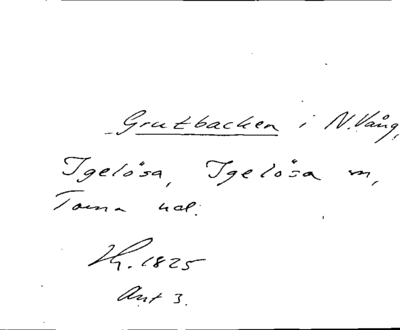 Grutbacken i N. Vång,
Igelösa, Igelösa sn,
Torna hd.
Hy. 1825
Akt 3.